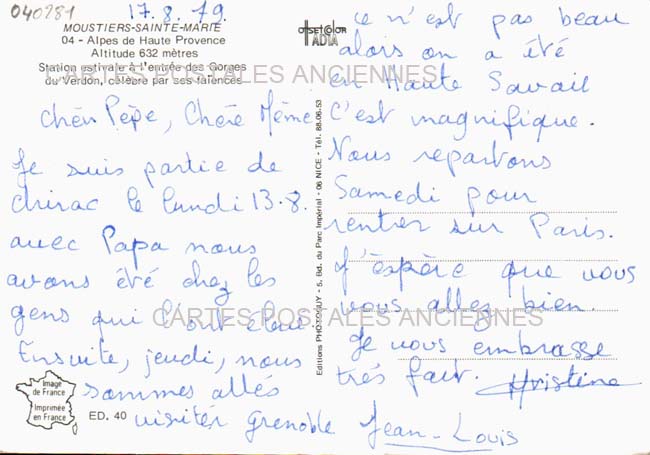 040281
17.8.79.
MOUSTIERS-SAINTE-MARIE
04 - Alpes de Haute Provence
Altitude 632 mètres
Station estivale à l'entrée des Gorges
du Verdon, célèbre par ses faïences
CARTES POSTALES ANCIENNES
Chèr Pépé, Chère Mémé
Je suis partie de
chirac le lundi 13.8.
avec Papa nous
avons été chez les
gens qui l'ont élevé
Ensuite, jeudi, nous
sommes allés
visiter Grenoble
Image
de France
Imprimée
en France
ED. 40
OFFSET COLOR
ADIA
Tél. 88.06.53
5, Bd. du Parc Impérial - 06 NICE
Editions
ce n'est pas beau
alors on a été
en Haute Savail
C'est magnifique.
Nous repartons
Samedi pour
rentrer sur Paris.
J'espère que vous
vous allez bien.
CARTES POSTALES ANCIENNES
Je vous embrasse
très fort. Christine
Jean-Louis